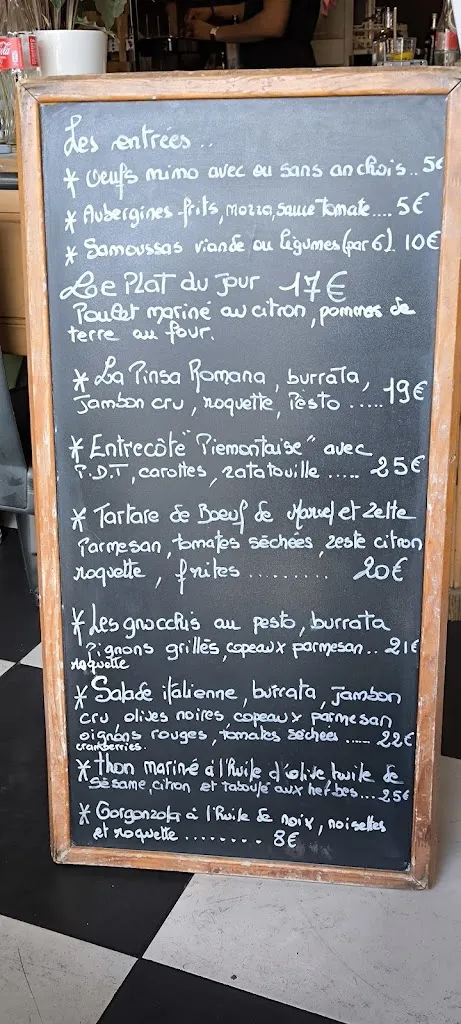 Les entrées ..
* Oeufs mimo avec ou sans anchois.. 5€
* Aubergines frits, mozza, sauce tomate.... 5€
* Samoussas viande ou légumes (par 6). 10€
Le Plat du Jour 17€
Poulet mariné au citron, pommes de
terre au four.
* La Pinsa Romana, burrata,
Jambon cru, roquette, Pesto ..... 19€
* Entrecôte "Piemontaise" avec
P.D.T, carottes, ratatouille ..... 25€
* Tartare de Boeuf de Marcel et Zette
Parmesan, tomates séchées, zeste citron
roquette, frites ......... 20€
* Les gnocchis au pesto, burrata
Pignons grillés, copeaux parmesan.. 21€
roquette
* Salade italienne, burrata, Jambon
cru, olives noires, copeaux parmesan
oignons rouges, tomates séchées ..... 22€
cranberries.
* Thon mariné à l'huile d'olive huile de
Sésame, citron et taboulé aux herbes... 25€
* Gorgonzola à l'huile de noix, noisettes
et roquette ........ 8€